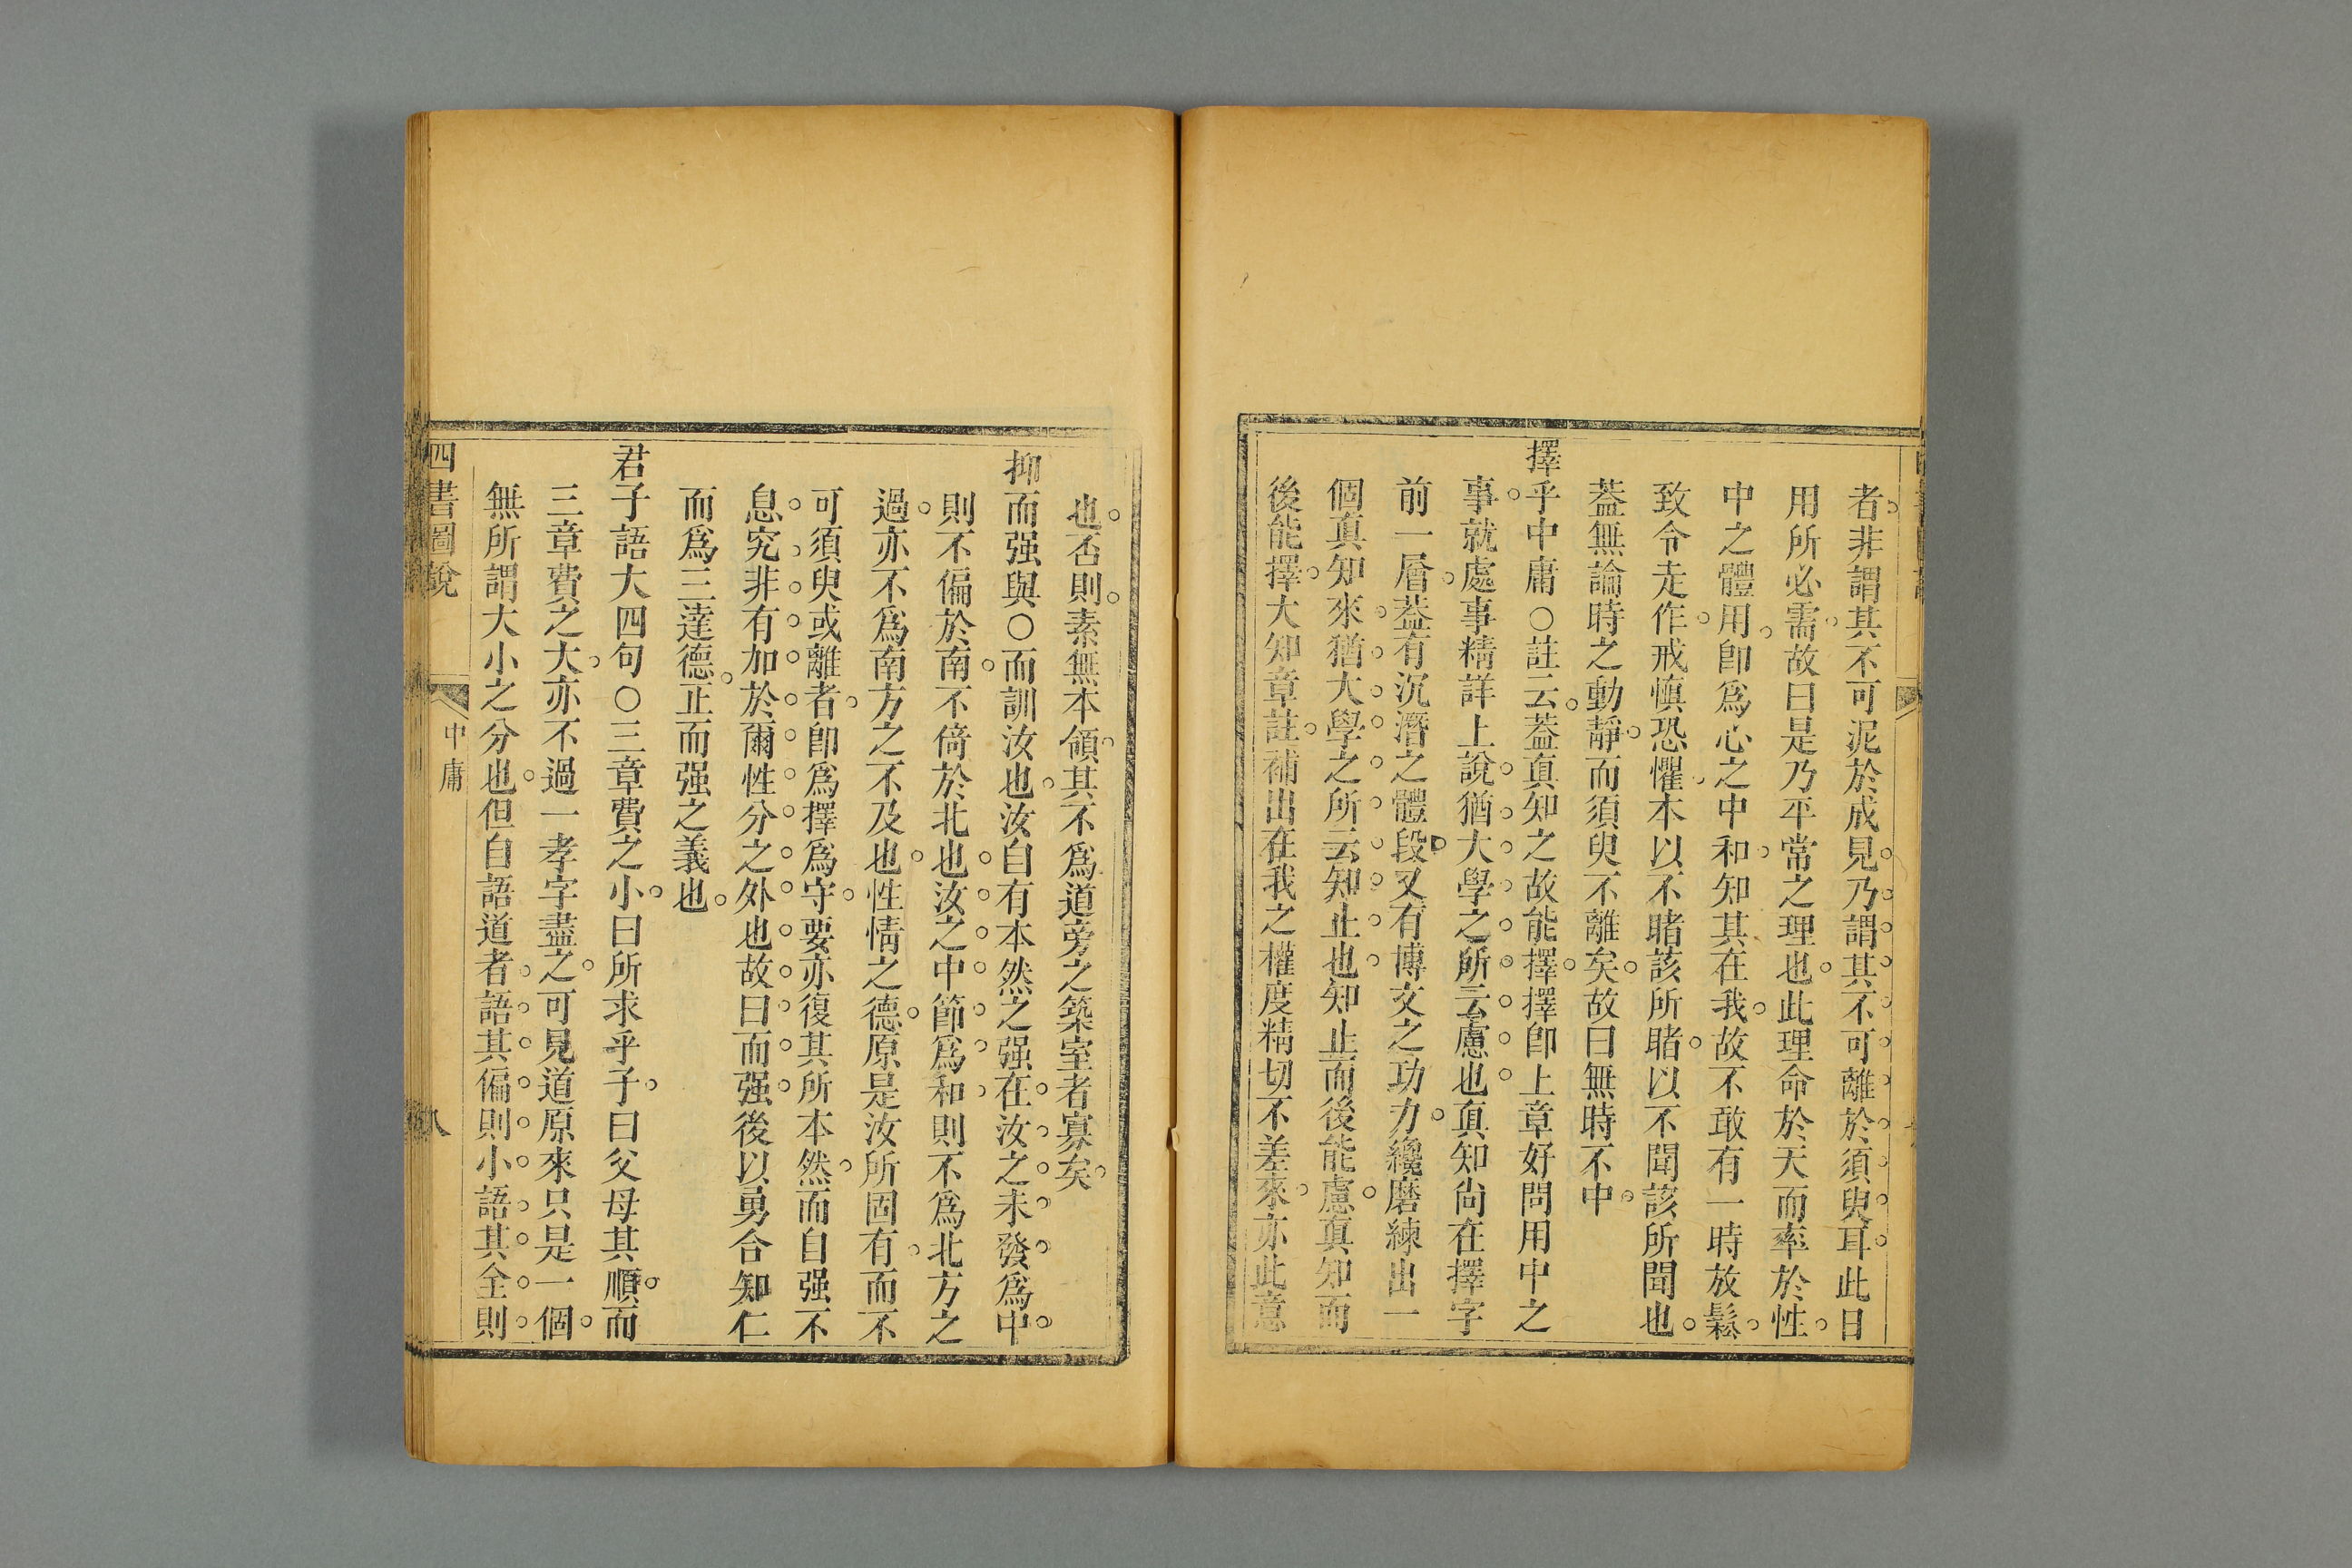 者非謂其不可泥於成見乃謂其不可離於須臾耳此日
用所必需故曰是乃平常之理也此理命於天而率於性
中之體用卽爲心之中和知其在我故不敢有一時放鬆
致令走作戒慎恐懼本以不睹該所睹以不聞該所聞也
葢無論時之動靜而須臾不離矣故曰無時不中
擇乎中庸〇註云葢眞知之故能擇擇卽上章好問用中之
事就處事精詳上說猶大學之所云慮也眞知尙在擇字
前一層葢有沉潛之體段又有博文之功力纔磨練出一
個眞知來猶大學之所云知止也知止而後能慮眞知而
後能擇大知章註補出在我之權度精切不差來亦此意
也否則素無本領其不爲道旁之築室者寡矣
抑而强與〇而訓汝也汝自有本然之强在汝之未發爲中
則不偏於南不倚於北也汝之中節爲和則不爲北方之
過亦不爲南方之不及也性情之德原是汝所固有而不
可須臾或離者卽爲擇爲守要亦復其所本然而自强不
息究非有加於爾性分之外也故曰而强後以勇合知仁
而爲三達德正而强之義也
君子語大四句〇三章費之小曰所求乎子曰父母其順而
三章費之大亦不過一孝字盡之可見道原來只是一個
無所謂大小之分也但自語道者語其偏則小語其全則
四書圖說
中庸
八